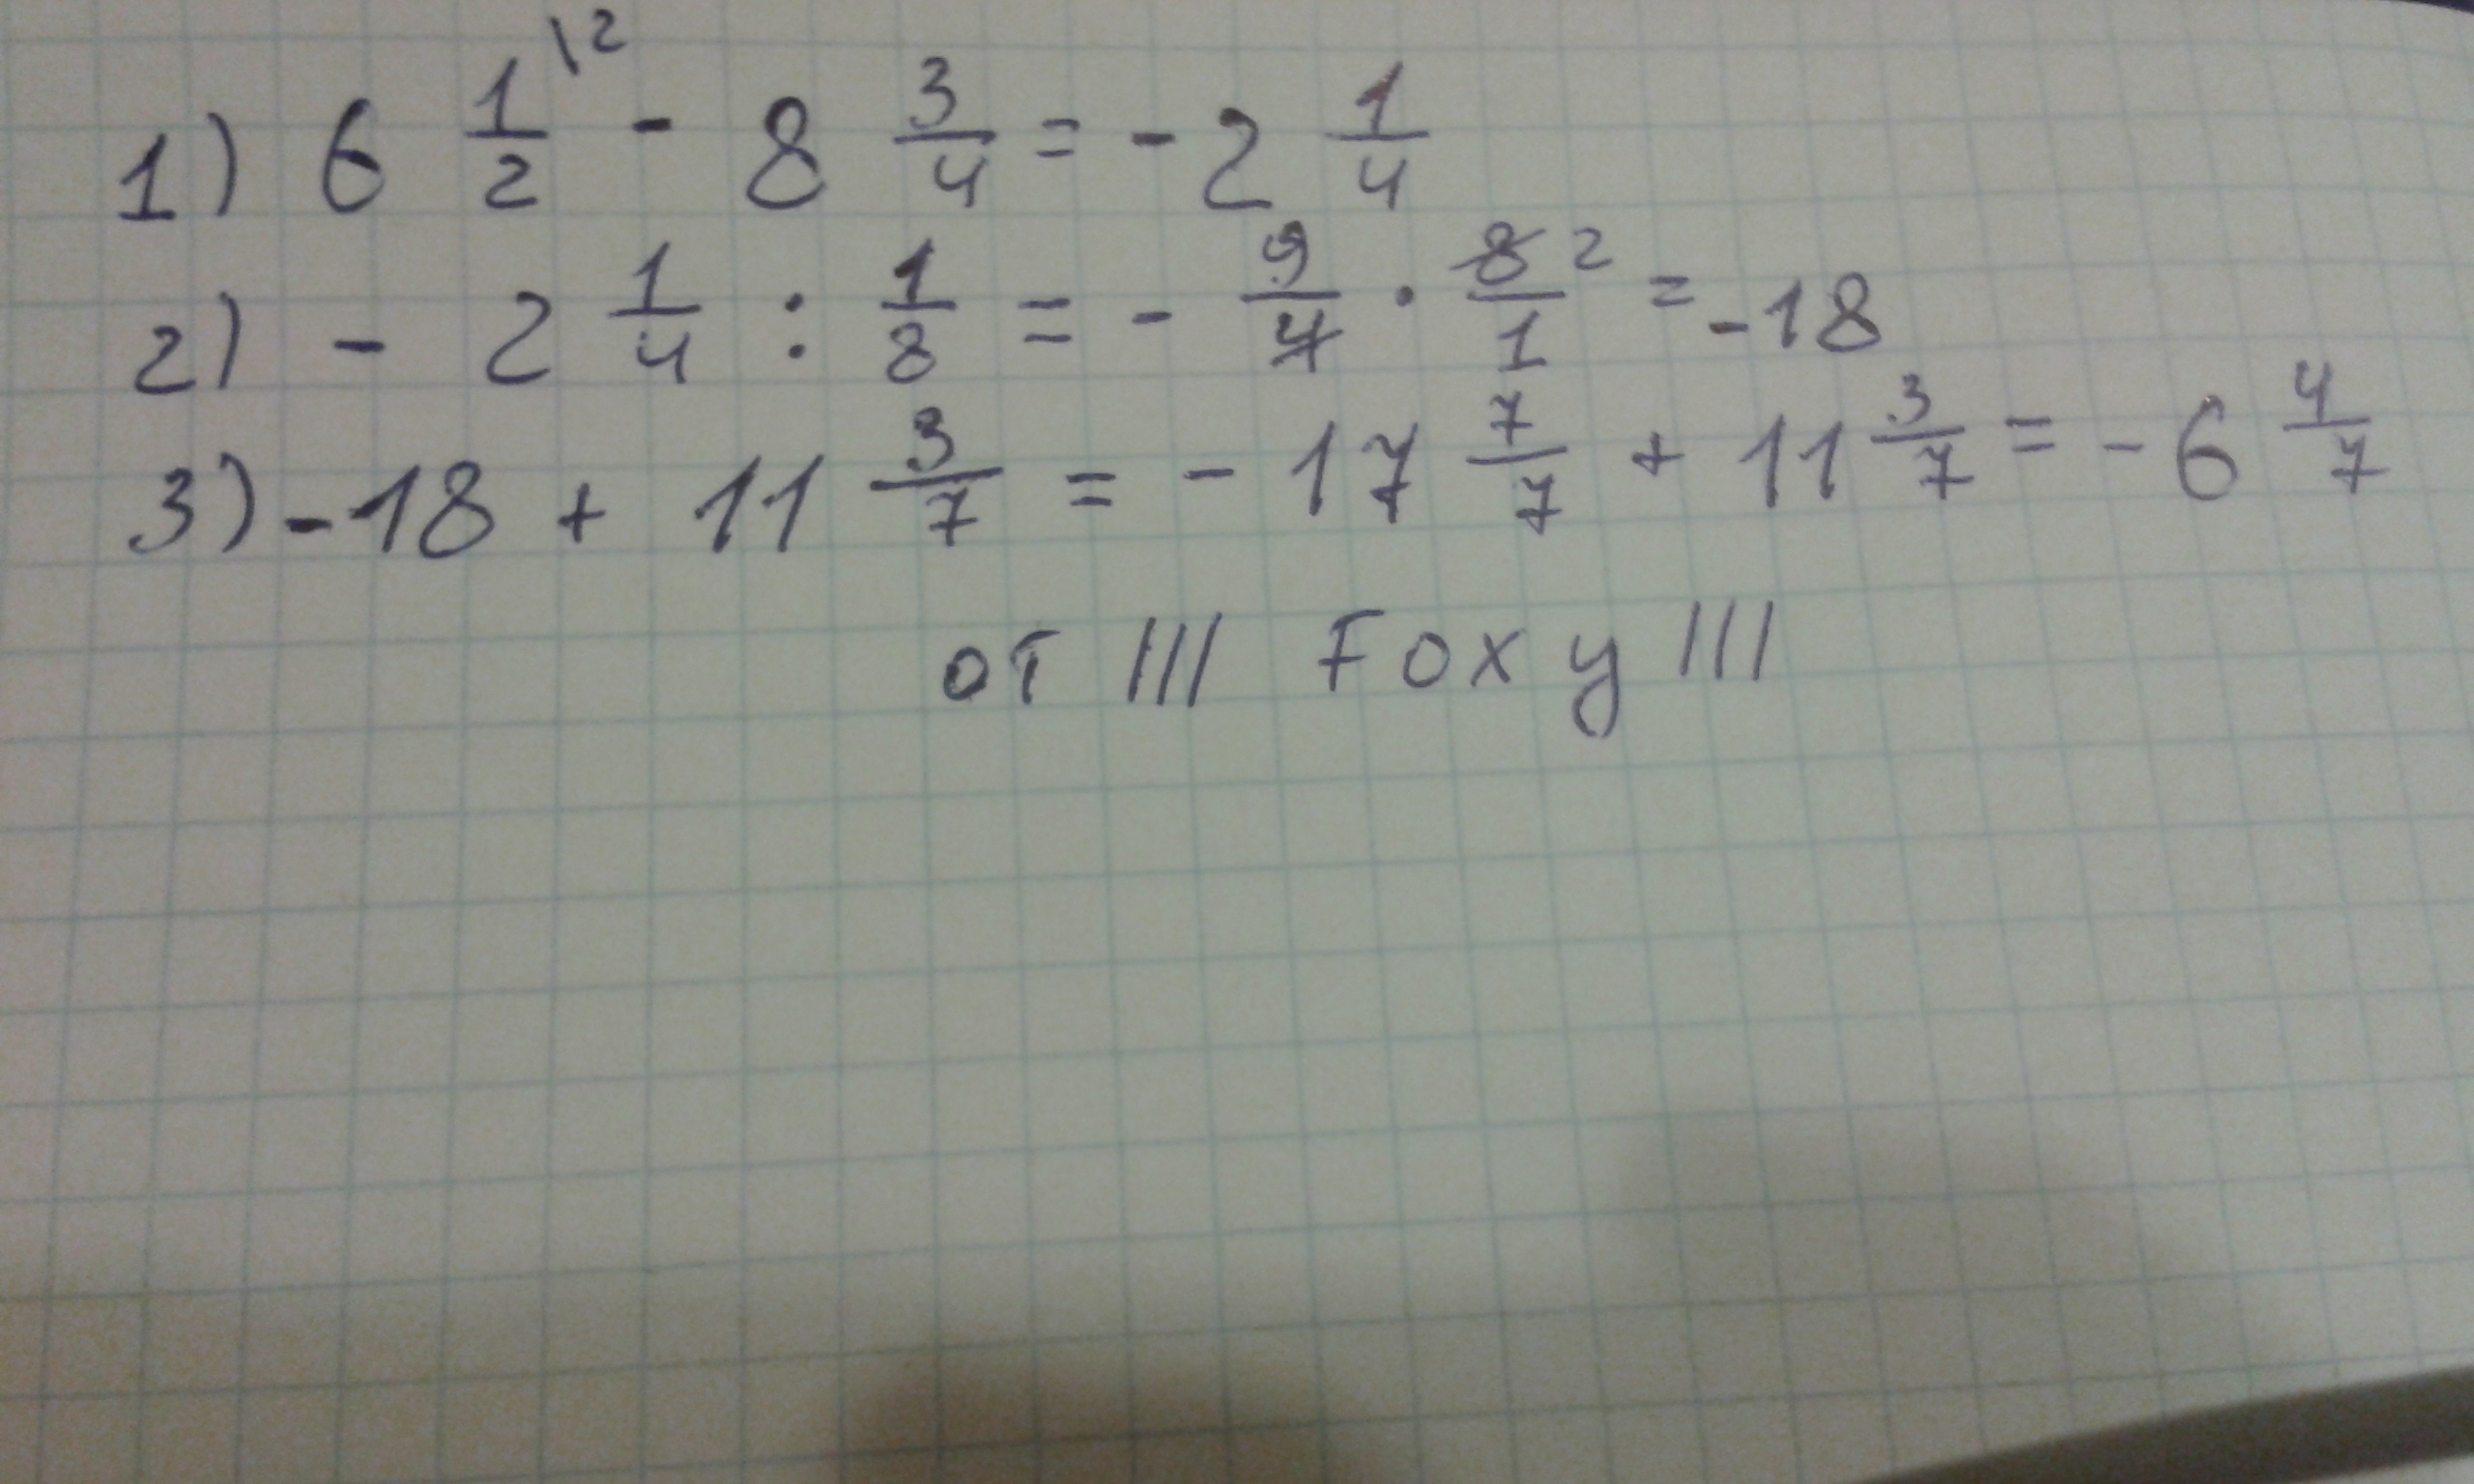 1) 6 1/2 \2 - 8 3/4 = - 2 1/4
2) - 2 1/4 : 1/8 = - 9/4 · 8/1 2 = -18
3) -18 + 11 3/7 = - 17 7/7 + 11 3/7 = - 6 4/7
от ||| Foxy |||